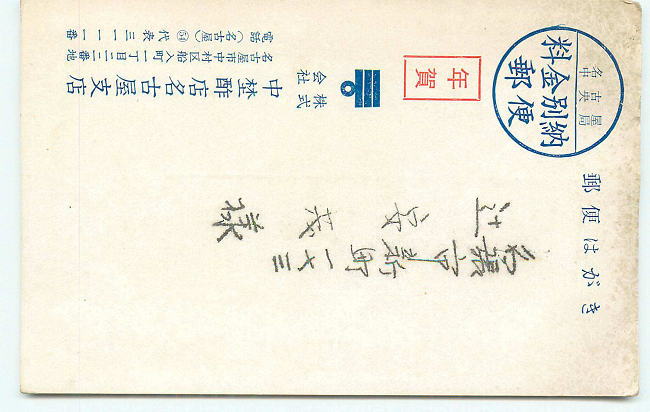 郵便はがき
名古屋
中央局
料金別納
郵便
年賀
名張市新町一七三
辻安茂様
株式
会社
中埜酢店名古屋支店
名古屋市中村区船入町一丁目二二番地
電話(名古屋)(54)代表三一一一番